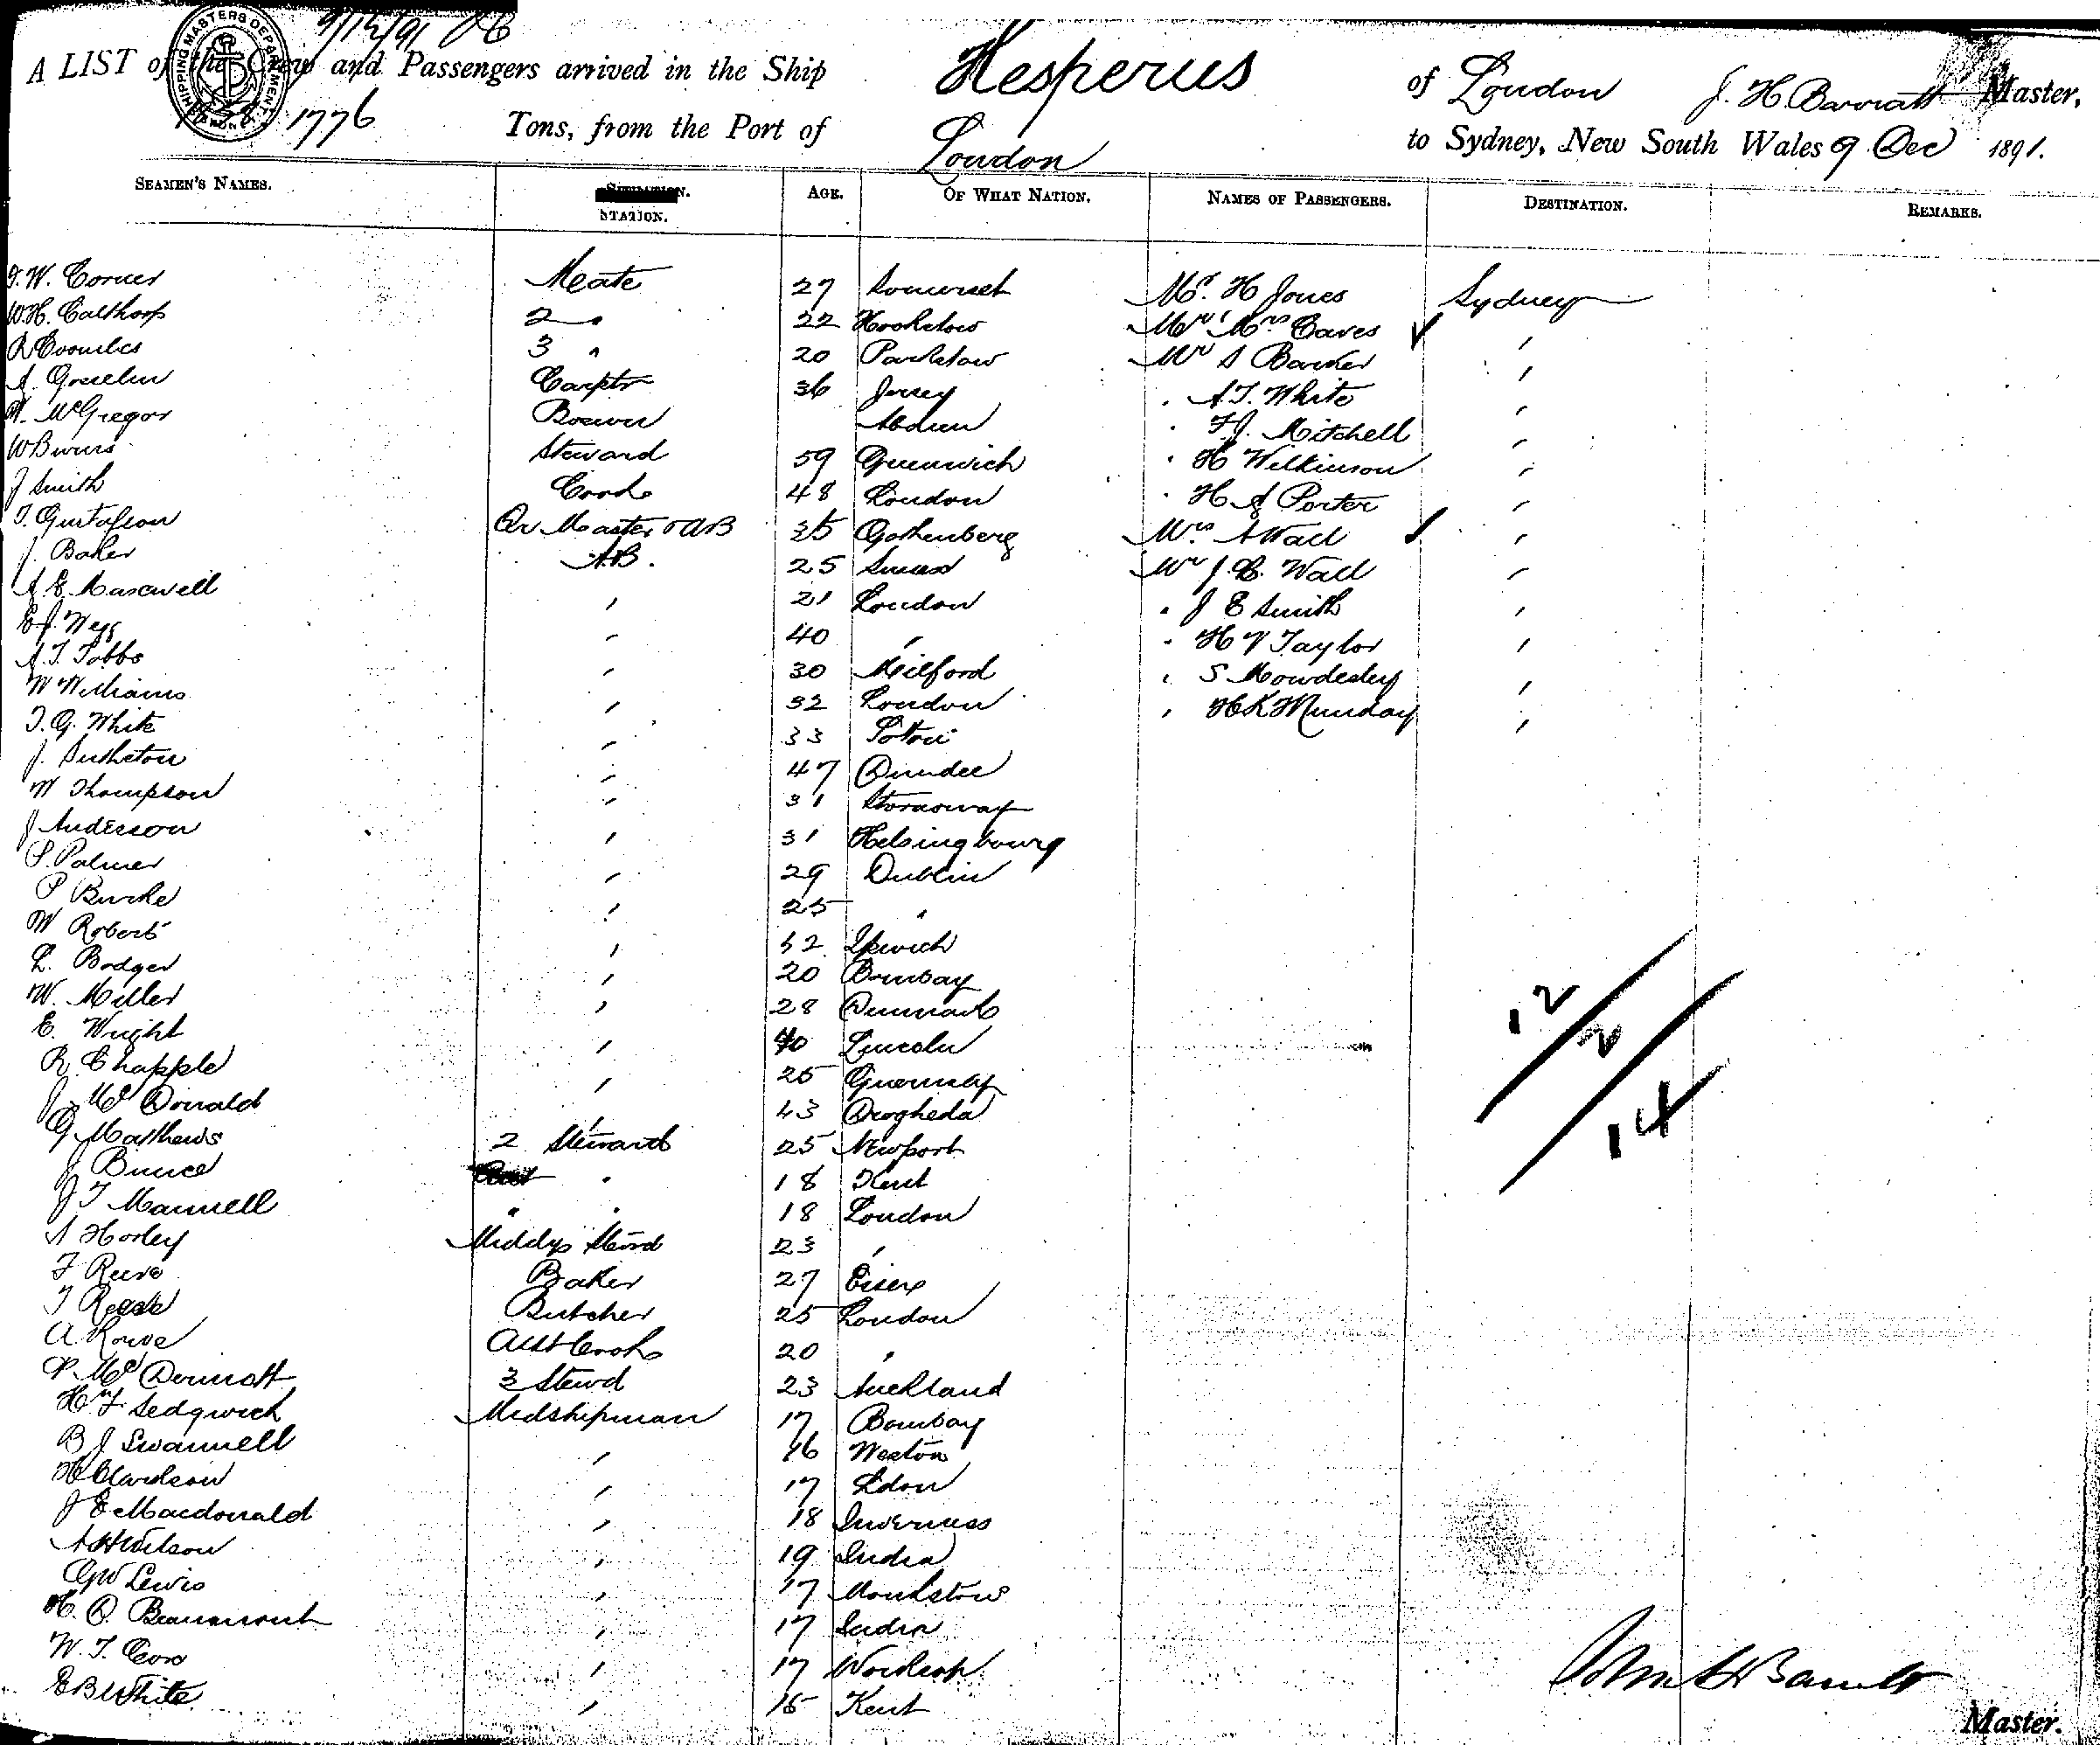 9/12/91
SHIPPING MASTERS DEPARTMENT SYDNEY
A LIST of the Crew and Passengers arrived in the Ship Hesperus of London J. H. Barratt Master,
1776 Tons, from the Port of London to Sydney, New South Wales 9 Dec 1891.
SEAMEN'S NAMES. STATION. AGE. OF WHAT NATION. NAMES OF PASSENGERS. DESTINATION. REMARKS.
T. W. Corner Mate 27 Somerset Mr. H Jones Sydney
W. H. Calthorp 2 " 22 Mr & Mrs Caves "
R Coombes 3 " 20 Mr S Barker "
A. Gosselin Carptr 36 Jersey " A. T. White "
McGregor Boswn " F. J. Mitchell "
W Burns Steward 59 Greenwich " H Wilkinson "
J Smith Cook 48 London " H A Porter "
T. Gustafson Qr Master & AB 35 Gothenberg Mrs A Wall "
J. Baker AB. 25 Mr J. C. Wall "
A. E. Maxwell " 21 London " J E Smith "
E. J. Wegg " 40 " " H V Taylor "
A. T. Tobbs " 30 Milford " S Mowdesley "
W Williams " 32 London " H K Munday "
T. G. White " 33 Soton
J. " 47 Dundee
W Thompson " 31 Stornoway
J Anderson " 31 Helsingbourg
P. Palmer " 29 Dublin
P Burke " 25 "
W Roberts " 52 Ipswich
L. Bodger " 20 Bombay
W. Miller " 28 Denmark
E. Wright " 40 Lincoln
R. Chapple " 25 Guernsey
J. McDonald " 43 Drogheda
G Matthews 2 Steward 25 Newport
J Bunce " 18 Kent
J T Mannell " " 18 London
A Horley Middys Stewd 23 "
F Reeve Baker 27 Essex
T Butcher 25 London
A. Rowe Asst Cook 20 "
P. McDermott 3 Stewd 23 Auckland
H. F. Sedgwick Midshipman 17 Bombay
B J Swannell " 16 Weston
H Clarkson " 17 Ldon
J E Macdonald " 18 Inverness
A H Wilson " 19 India
G W Lewis " 17 Monkstow
H. D. Beaumont " 17 India
W. T. Cox " 17 Worksop
E B White " 15 Kent
12/2/14
John H Barratt
Master.